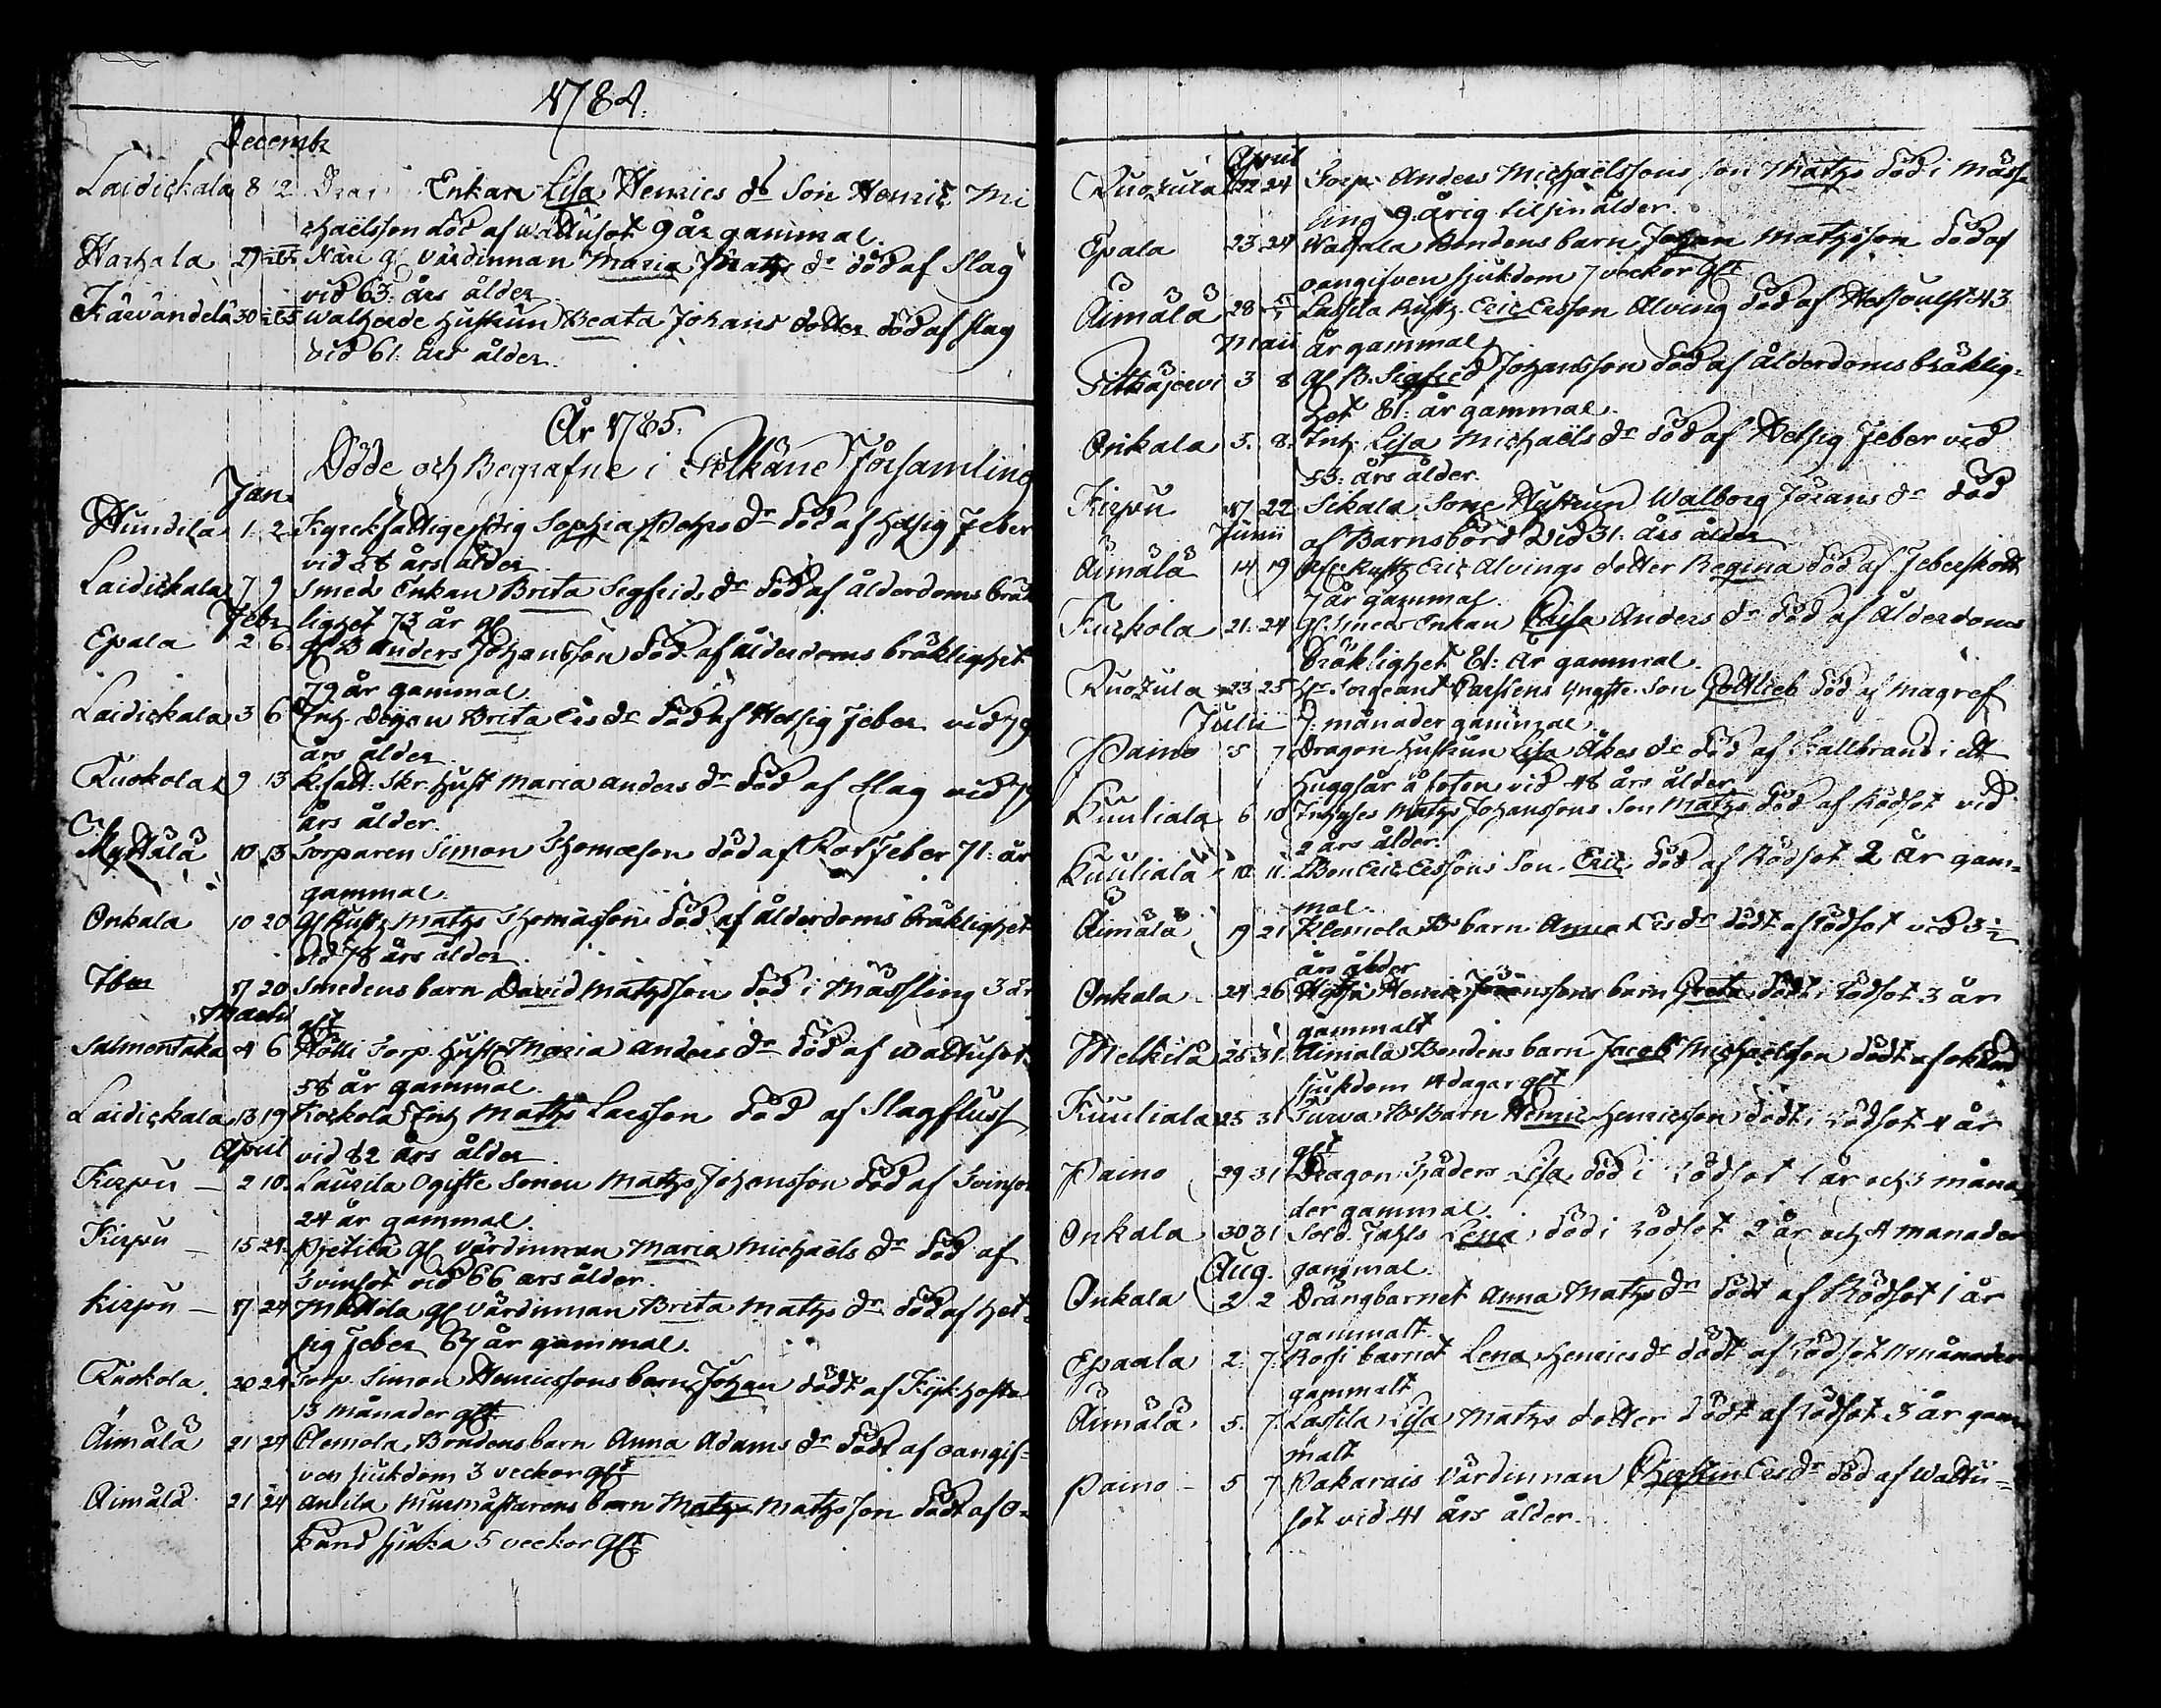 1784.
Decembr
Laidickala 8 12 Enkan Lisa Henrics dr Son Henric Mi
chaëlsson död af wattusot 9 år gammal.
Harhala 29 Näri gl värdinnan Maria Matts dr död af Slag
vid 63: års ålder
Kärvändelä 30 hustrun Beata Johans dotter död af slag
vid 61: års ålder.
År 1785.
Döde och Begrafne i Pelkäne Församling
Jan.
Hundila 1. 2. Sophia dr död af hetsig feber
vid 58 års ålder
Laidickala 7 9 Smeds Enkan Brita Segfrids dr död af ålderdoms bräk
Febr. lighet 73 år gl
Epala 2 6. gl B Anders Johansson död af ålderdoms bräklighet
79 år gammal.
Laidickala 3 6 Inh. Brita Ers dr död af Hetsig feber vid 79
års ålder
Kuokola 9 13 k.fatt. Skr. hust Maria Anders dr död af slag vid 79
års ålder.
Myttälä 10 13 Torparen Simon Thomæson död af Rötfeber 71: år
gammal.
Onkala 10 20 Gl Rustz Matts Thomasson död af ålderdoms bräklighet
vid 78 års ålder.
Ibm 17 20 Smedens barn David Matzsson död i Mässling 3 år
Martii glt
Salmentaka 4 6 Hölli Torp. Hust Maria Anders dr död af wattusot
58 år gammal.
Laidickala 13 19 Korkola Inh Matts Larsson död af Slagfluss
April vid 82 års ålder
Kirpu — 2 10. Laurila Ogifte Sonen Matts Johansson död af Tvinsot
24 år gammal.
Kirpu — 15 24. Prjtilä gl värdinnan Maria Michaëls dr död af
Tvinsot vid 66 ars ålder.
Kirpu — 17 24 Mattila gl värdinnan Brita Matts dr död af het-
sig feber 67 år gammal.
Kuokola. 20 24 Torp. Simon Henricssons barn Johan dödt af Kikhosta
13 månader glt
Äimälä 21 24 Clemola Bondens barn Anna Adams dr dödt af oangif-
ven sjukdom 3 veckor glt
Äimälä 21 24 Ankila Murmästarens barn Matts Mattsson dödt af o-
känd sjuka 5 veckor glt
April
Ruokula 22 24 Torp. Anders Michaëlssons son Matts död i Mäss-
ling 9 årig til sin ålder.
Epala 23 24 Bondens barn Johan Matzsson död af
oangifven sjukdom 7 veckor glt
Äimälä 28 Lassila Rustz. Eric Ersson Alving död af 43
Maii år gammal
Pithäjervi 3 8 gl B. Segfred Johansson död af ålderdoms bräklig-
het 81: år gammal.
Onkala 5. 8. Inh. Lisa Michaëls dr död af Hetsig feber vid
53: års ålder.
Kirpu 17 22 Sikala Sone Hustrun Walborg Jörans dr död
Junii af Barnsbörd vid 31. års ålder
Äimälä 14 19 Rustz Eric Alvings dotter Regina död af
7 år gammal.
Kuokola 21. 24 Gl. Smeds Enkan Caisa Anders dr död af Ålderdoms
Bräklighet 81: år gammal.
Ruokula 23 25 Hr Sergeant Yngste Son Gottlieb död af Magref
Julii 7. månader gammal.
Paino 5 7 Dragon hustrun Lisa Åkes dr död af Kallbrand i ett
huggsår å foten vid 48 års ålder
Kuuliala 6 10 Inhyses Matts Johanssons Son Matts död af Rödsot vid
2 års ålder.
Kuuliala 10 11. Eric Erssons Son Eric död af Rödsot 2 år gam-
mal.
Äimälä 19 21 Klemola Bs barn Anna Ers dr dödt af rödsot vid 3½
års ålder
Onkala 24 26 Henric Jöranssons barn Greta dödt i Rödsot 3 år
gammalt
Mielkilä 25 31. Äimälä Bondens barn Jacob Michaëlsson dödt af okänd
sjukdom 14 dagar glt
Kuuliala 25 31 Turwa Bs Barn Henric Henricsson dödt i rödsot 4 år
glt
Paino 29 31 Dragon Spåders Lisa död i rödsot 1 år och 3 måna-
der gammal.
Onkala 30 31 Sold. Jahls Lena död i rödsot 2 år och 4 månader
Aug. gammal.
Onkala 2 2 Drängbarnet Anna Matts dr dödt af Rödsot 1 år
gammalt
Epaala 2. 7. Rossi barnet Lena Henrics dr dödt af rödsot månader
gammalt
Äimälä 5. 7. Lassila Lisa Matts dotter dödt af rödsot 3 år gam-
malt
Paino — 5 7. Pakarais Värdinnan Ers dr död af wattu-
sot vid 41 års ålder.